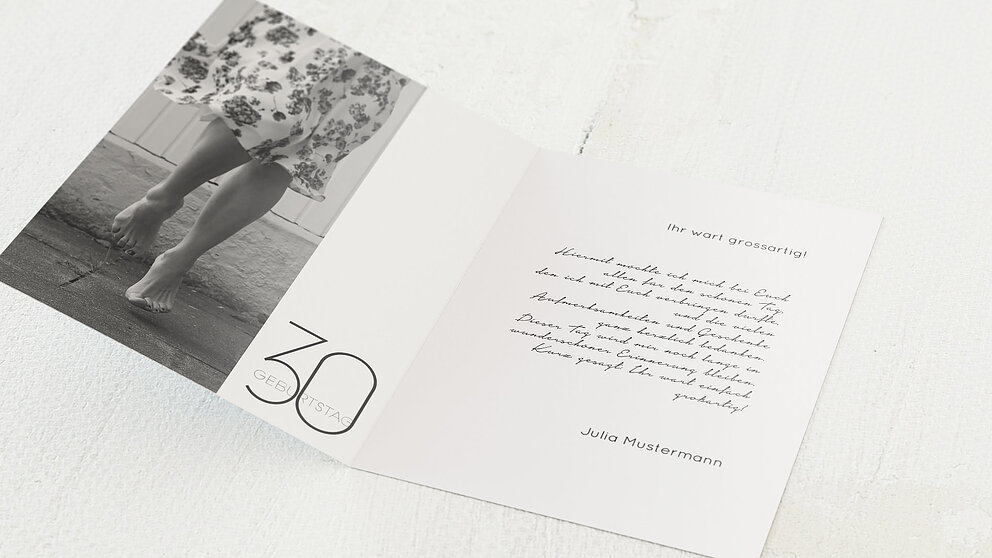 30
GEBURTSTAG
Ihr wart grossartig!
Hiermit möchte ich mich bei Euch
allen für den schönen Tag,
den ich mit Euch verbringen durfte,
und die vielen
Aufmerksamkeiten und Geschenke
ganz herzlich bedanken.
Dieser Tag wird mir noch lange in
wunderschöner Erinnerung bleiben.
Kurz gesagt: Ihr wart einfach
großartig!
Julia Mustermann